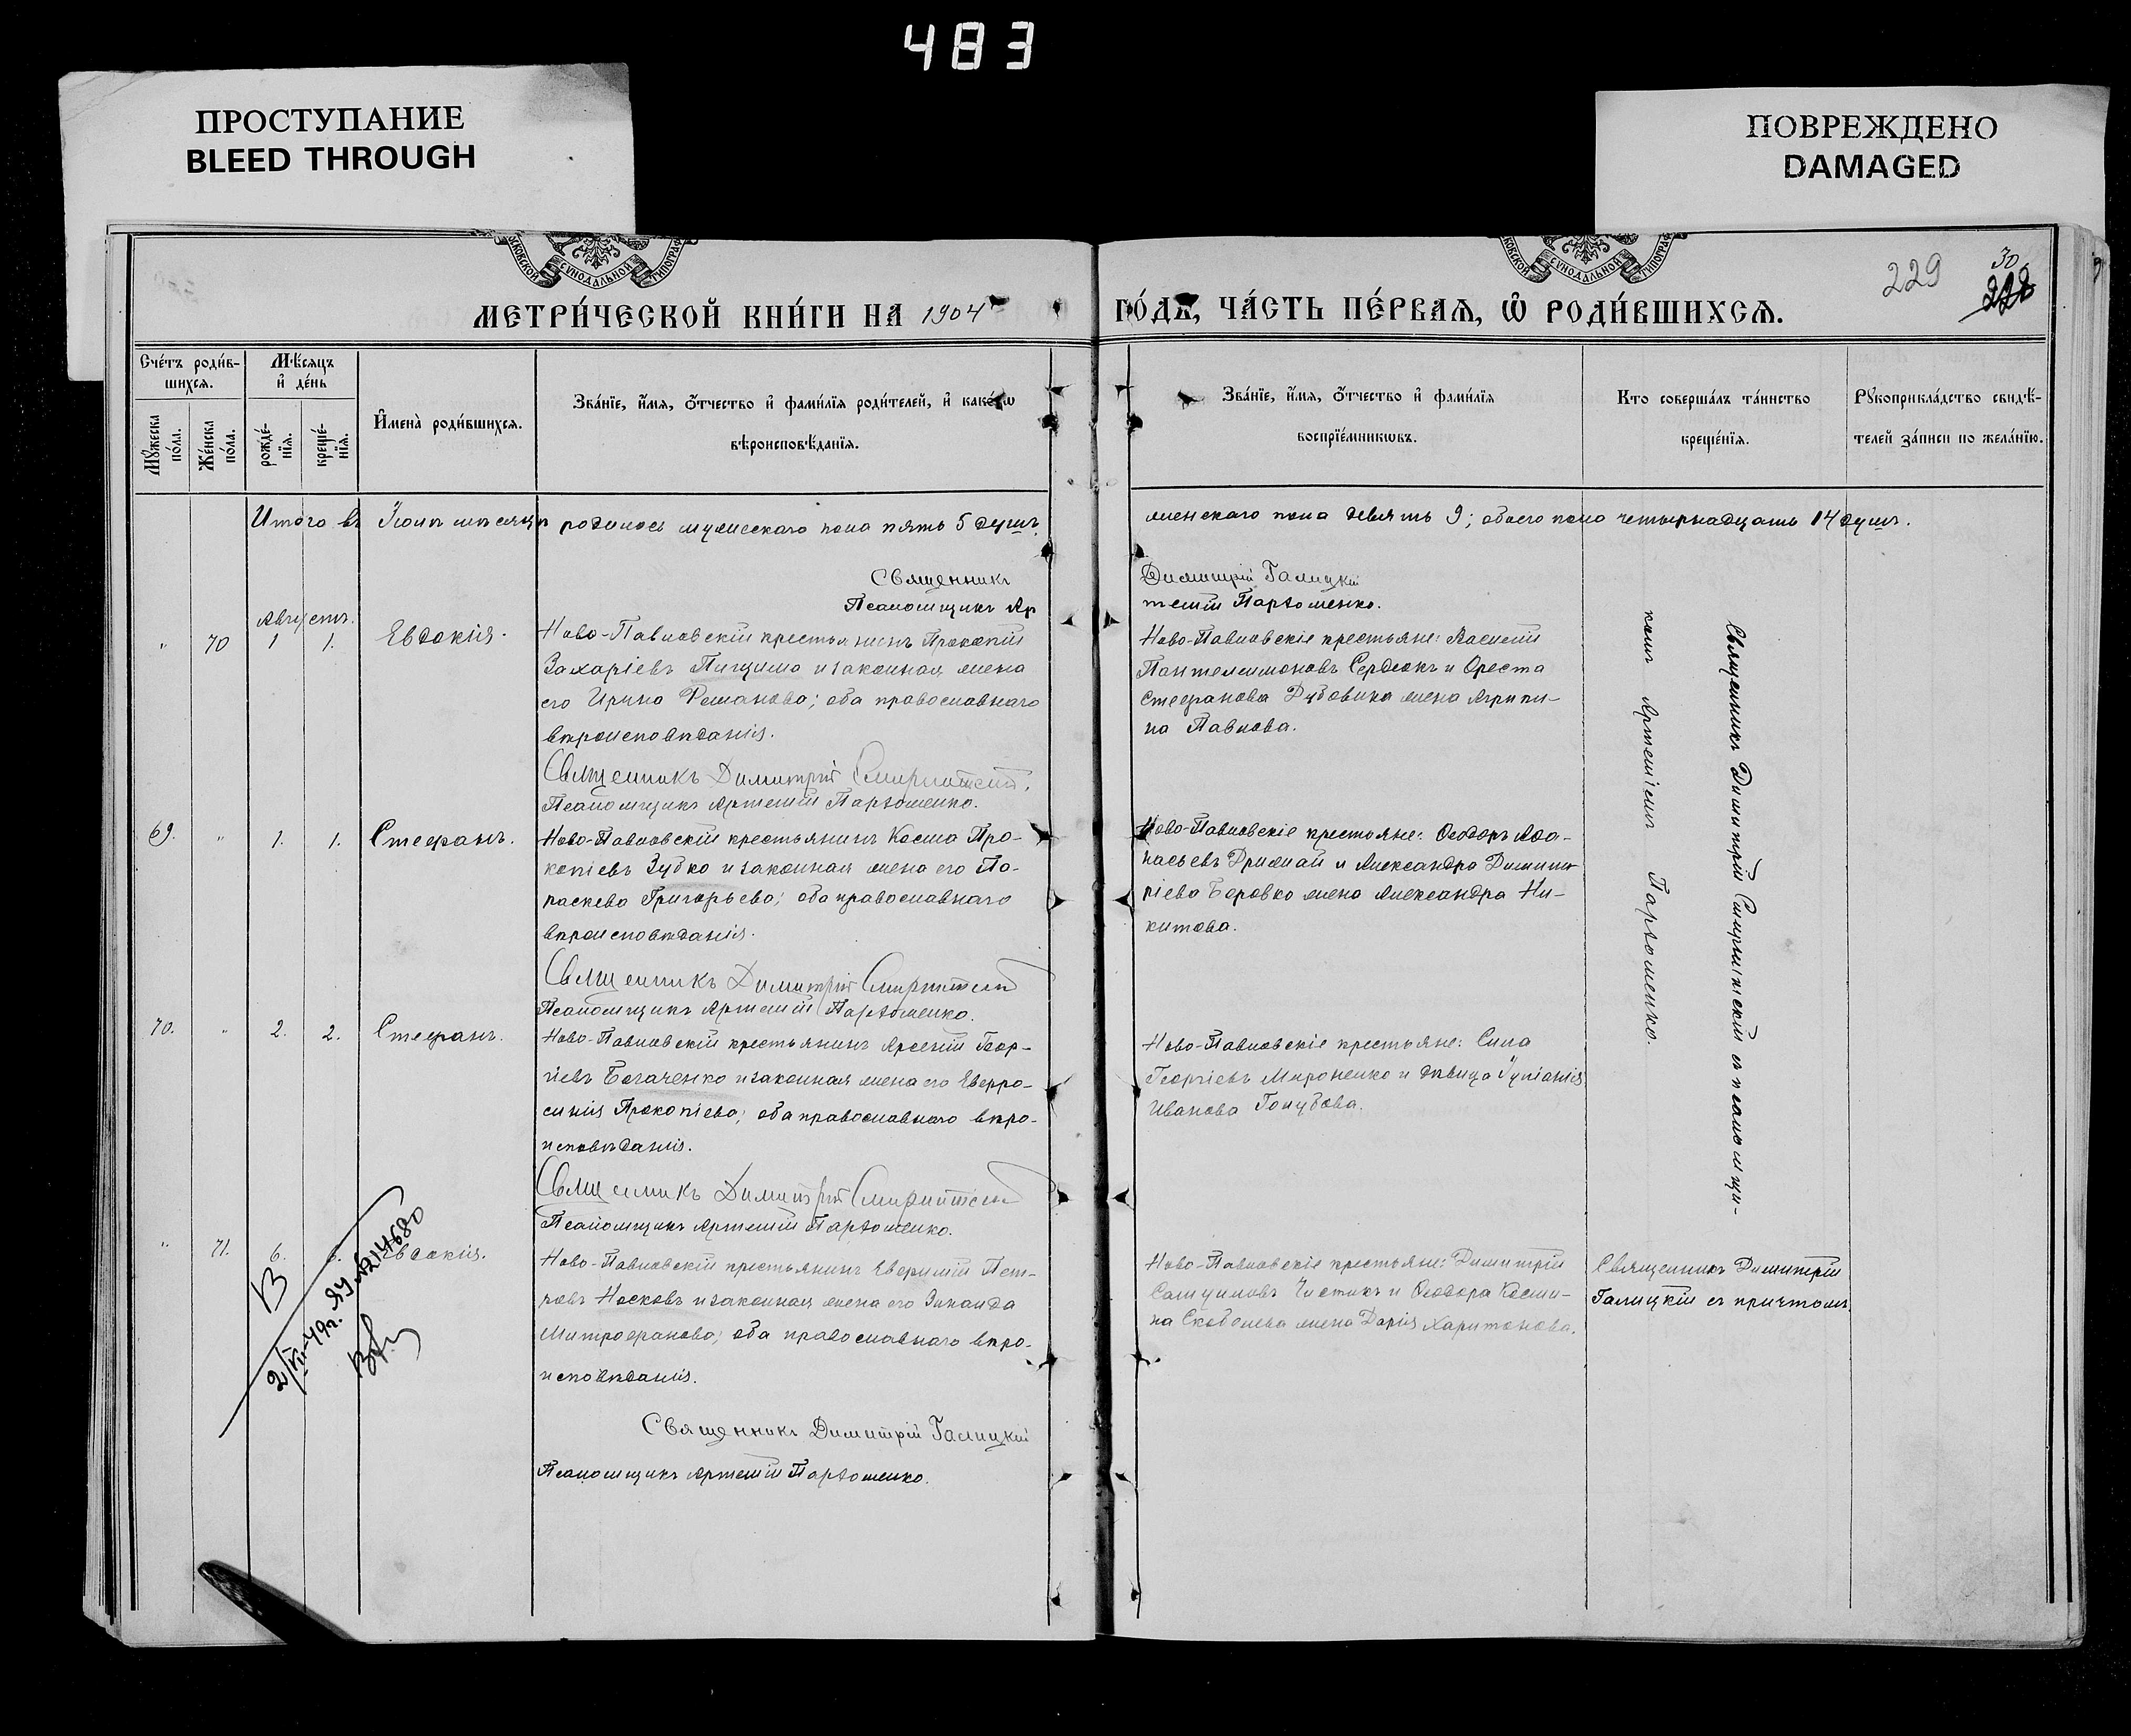 483
ПРОСТУПАНИЕ
BLEED THROUGH
ПОВРЕЖДЕНО
DAMAGED
СѴНОДАЛЬНОЙ
СѴНОДАЛЬНОЙ
229
30
МЕТРИ́ЧЕСКОЙ КНИ́ГИ НА 1904
ГО́ДЪ, ЧА́СТЬ ПЕ́РВАЯ, Ѡ РОДИ́ВШИХСЯ.
Сче́тъ роди́в-
шихся.
Мѣ́сяцъ
и де́нь
Мꙋ́жеска
по́ла.
Же́нска
по́ла.
рожде́-
нїя.
креще́-
нїя.
Имена̀ роди́вшихся.
Зва́нїе, и́мя, о́тчество и фами́лїя роди́телей, и како́гѡ
вѣроисповѣ́данїя.
Зва́нїе, и́мя, о́тчество и фами́лїя
воспрїе́мниковъ.
Кто соверша́лъ та́инство
креще́нїя.
Рꙋкоприкла́дство свидѣ́-
телей за́писи по жела́нїю.
Итого въ Іюлѣ мѣсяцѣ родилось мужескаго пола пять 5 душъ,
женскаго пола девять 9; обоего пола четырнадцать 14 душъ.
Священникъ
Димитрій Галицкій
Псаломщикъ Ар
темій Пархоменко.
Августъ.
" 70 1 1. Евдокія.
Ново-Павловскій крестьянинъ Прокопій
Захаріевъ Пищимо и законная жена
его Ирина Романова; оба православнаго
вѣроисповѣданія.
Священникъ Димитрій
Псаломщикъ Артемій Пархоменко.
Ново-Павловскіе крестьяне: Василій
Пантелеимоновъ Сердюкъ и Ореста
Стефанова Дубовика жена Агрипи-
на Павлова.
69. " 1. 1. Стефанъ.
Ново-Павловскій крестьянинъ Косма Про-
копіевъ Зубко и законная жена его Па-
раскева Григорьева; оба православнаго
вѣроисповѣданія.
Священникъ Димитрій
Псаломщикъ Артемій Пархоменко.
Ново-Павловскіе крестьяне: Ѳеодоръ Аѳа-
насьевъ и Александра Димит-
ріева Боровко жена Александра Ни-
китова.
70. " 2. 2. Стефанъ.
Ново-Павловскій крестьянинъ Арсеній Геор-
гіевъ Богаченко и законная жена его Евфро-
синія Прокопіева; оба православнаго вѣро-
исповѣданія.
Священникъ Димитрій
Псаломщикъ Артемій Пархоменко.
Ново-Павловскіе крестьяне: Сила
Георгіевъ Мироненко и дѣвица Іуліанія
Иванова Голубова.
Священникъ Димитрій съ псаломщи-
комъ Артеміемъ Пархоменко.
" 71. 6. 6. Евдокія.
Ново-Павловскій крестьянинъ Евфимій Пет-
ровъ Носковъ и законная жена его Зинаида
Митрофанова; оба православнаго вѣро-
исповѣданія.
Священникъ Димитрій Галицкій
Псаломщикъ Артемій Пархоменко.
Ново-Павловскіе крестьяне: Димитрій
Самуиловъ Чистикъ и Ѳеодора Косми-
на Скобелева жена Дарія Харитонова.
Священникъ Димитрій
Галицкій съ причтомъ.